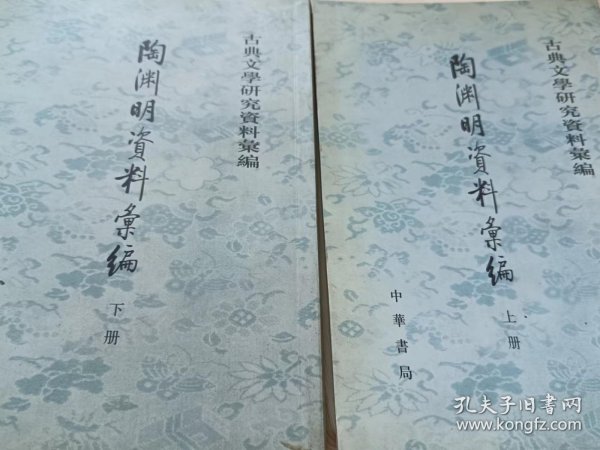 古典文學研究資料彙編
陶渊明資料彙編
上册
中華書局
古典文學研究資料彙編
陶渊明資料彙編
下册
孔夫子旧书网
www.kongfz.com